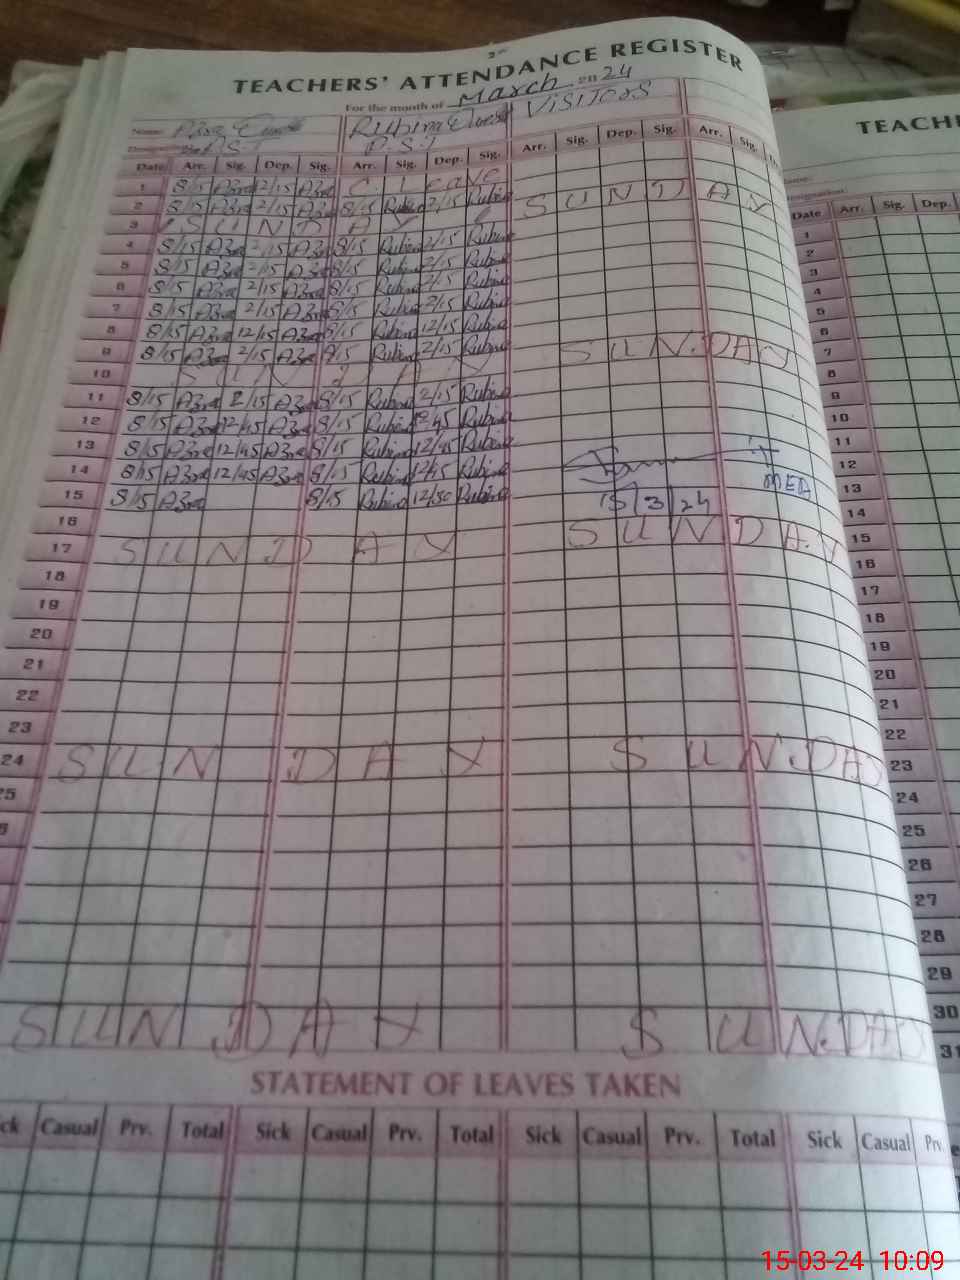 TEACHERS' ATTENDANCE REGISTER
For the month of March 2024
Name Rubina VISITORS
P.S.T P.S.T
Date Arr. Sig. Dep. Sig. Arr. Sig. Dep. Sig. Arr. Sig. Dep. Sig. Arr. Sig.
1 8/15 2/15 C. Leave
2 8/15 2/15 8/15 Rubina 2/15 Rubina
3 SUNDAY SUNDAY
4 8/15 2/15 8/15 Rubina 2/15 Rubina
5 8/15 2/15 8/15 Rubina 2/15 Rubina
6 8/15 2/15 8/15 Rubina 2/15 Rubina
7 8/15 2/15 8/15 Rubina 2/15 Rubina
8 8/15 12/15 8/15 Rubina 12/15 Rubina
9 8/15 2/15 8/15 Rubina 2/15 Rubina
10 SUNDAY SUN.DAY
11 8/15 2/15 8/15 Rubina 2/15 Rubina
12 8/15 12/45 8/15 Rubina 12/45 Rubina
13 8/15 12/45 8/15 Rubina 12/45 Rubina
14 8/15 12/45 8/15 Rubina 12/45 Rubina MEA
15 8/15 8/15 Rubina 12/50 Rubina 15/3/24
16
17 SUNDAY SUNDAY
18
19
20
21
22
23
24 SUNDAY SUN.DAY
25
SUNDAY SUN.DAY
STATEMENT OF LEAVES TAKEN
Casual Prv. Total Sick Casual Prv. Total Sick Casual Prv. Total Sick Casual Prv.
TEACHE
Date Arr. Sig. Dep.
1
2
3
4
5
6
7
8
9
10
11
12
13
14
15
16
17
18
19
20
21
22
23
24
25
26
27
28
29
30
31
15-03-24 10:09